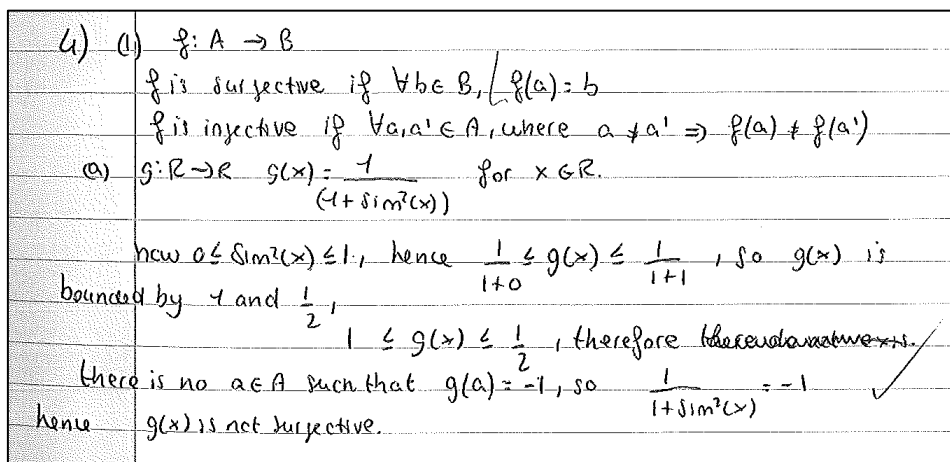 4) (1) f: A → B
f is surjective if ∀b∈B, f(a)=b
f is injective if ∀a,a' ∈ A, where a ≠ a' ⇒ f(a) ≠ f(a')
(a) g: R→R g(x) = 1/(1+sin²(x)) for x ∈ R.
now 0 ≤ sin²(x) ≤ 1, hence 1/(1+0) ≤ g(x) ≤ 1/(1+1), so g(x) is
bounded by 1 and 1/2,
1 ≤ g(x) ≤ 1/2, therefore
there is no a∈A such that g(a) = -1, so 1/(1+sin²(x)) = -1
hence g(x) is not surjective.